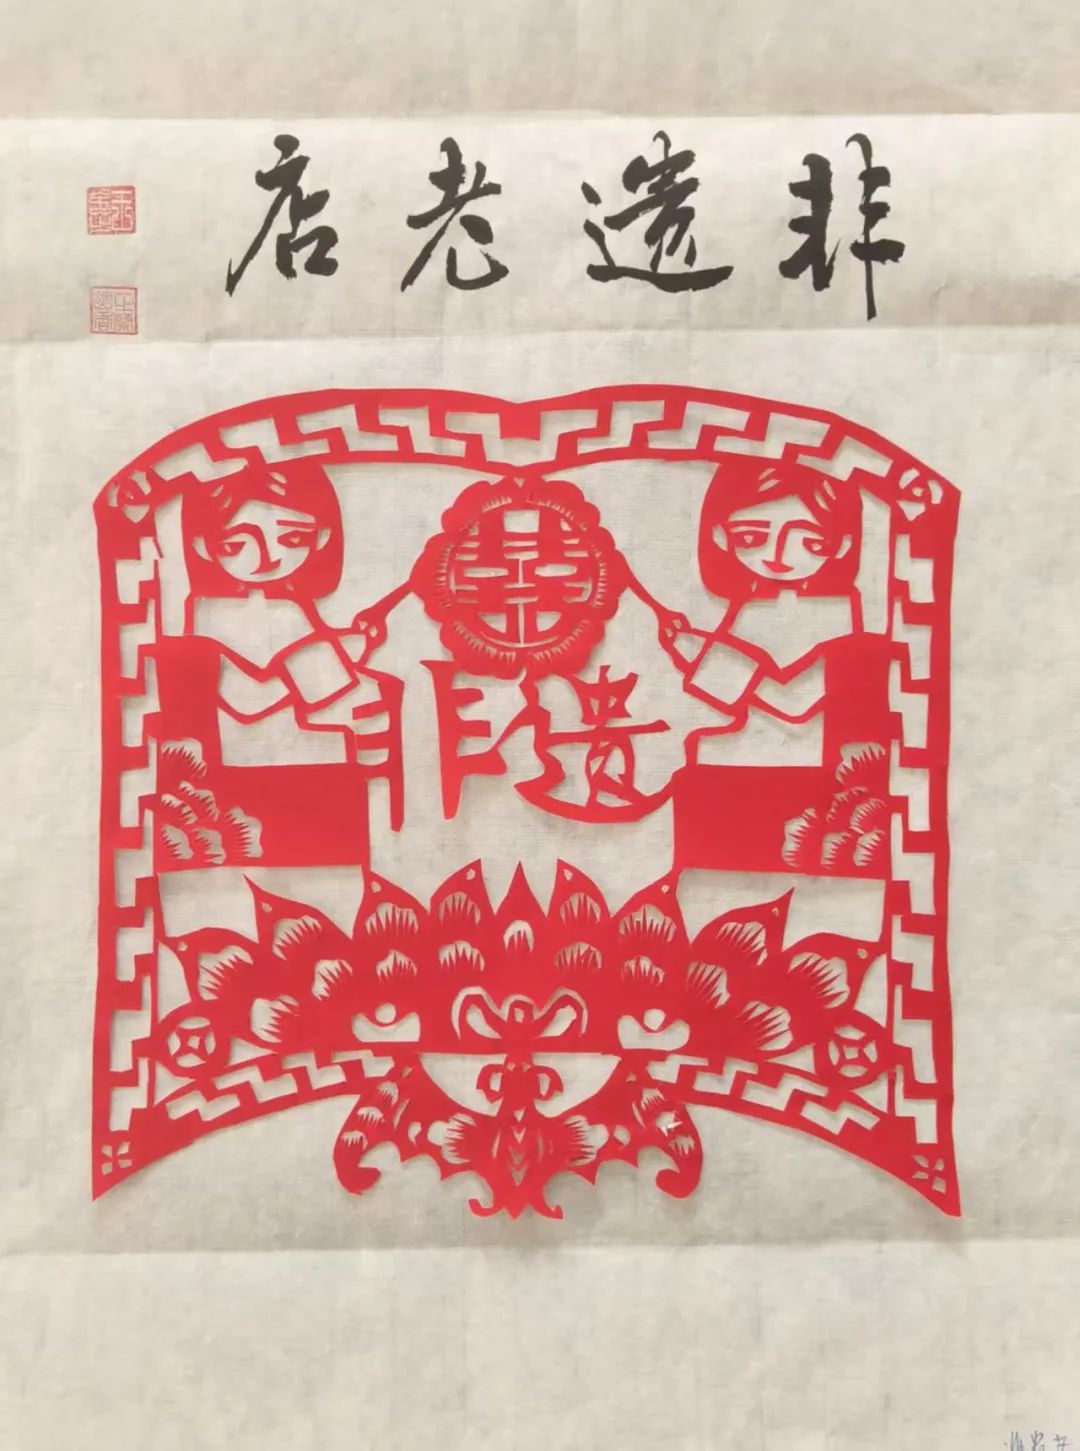 非遗老店
囍
非遗